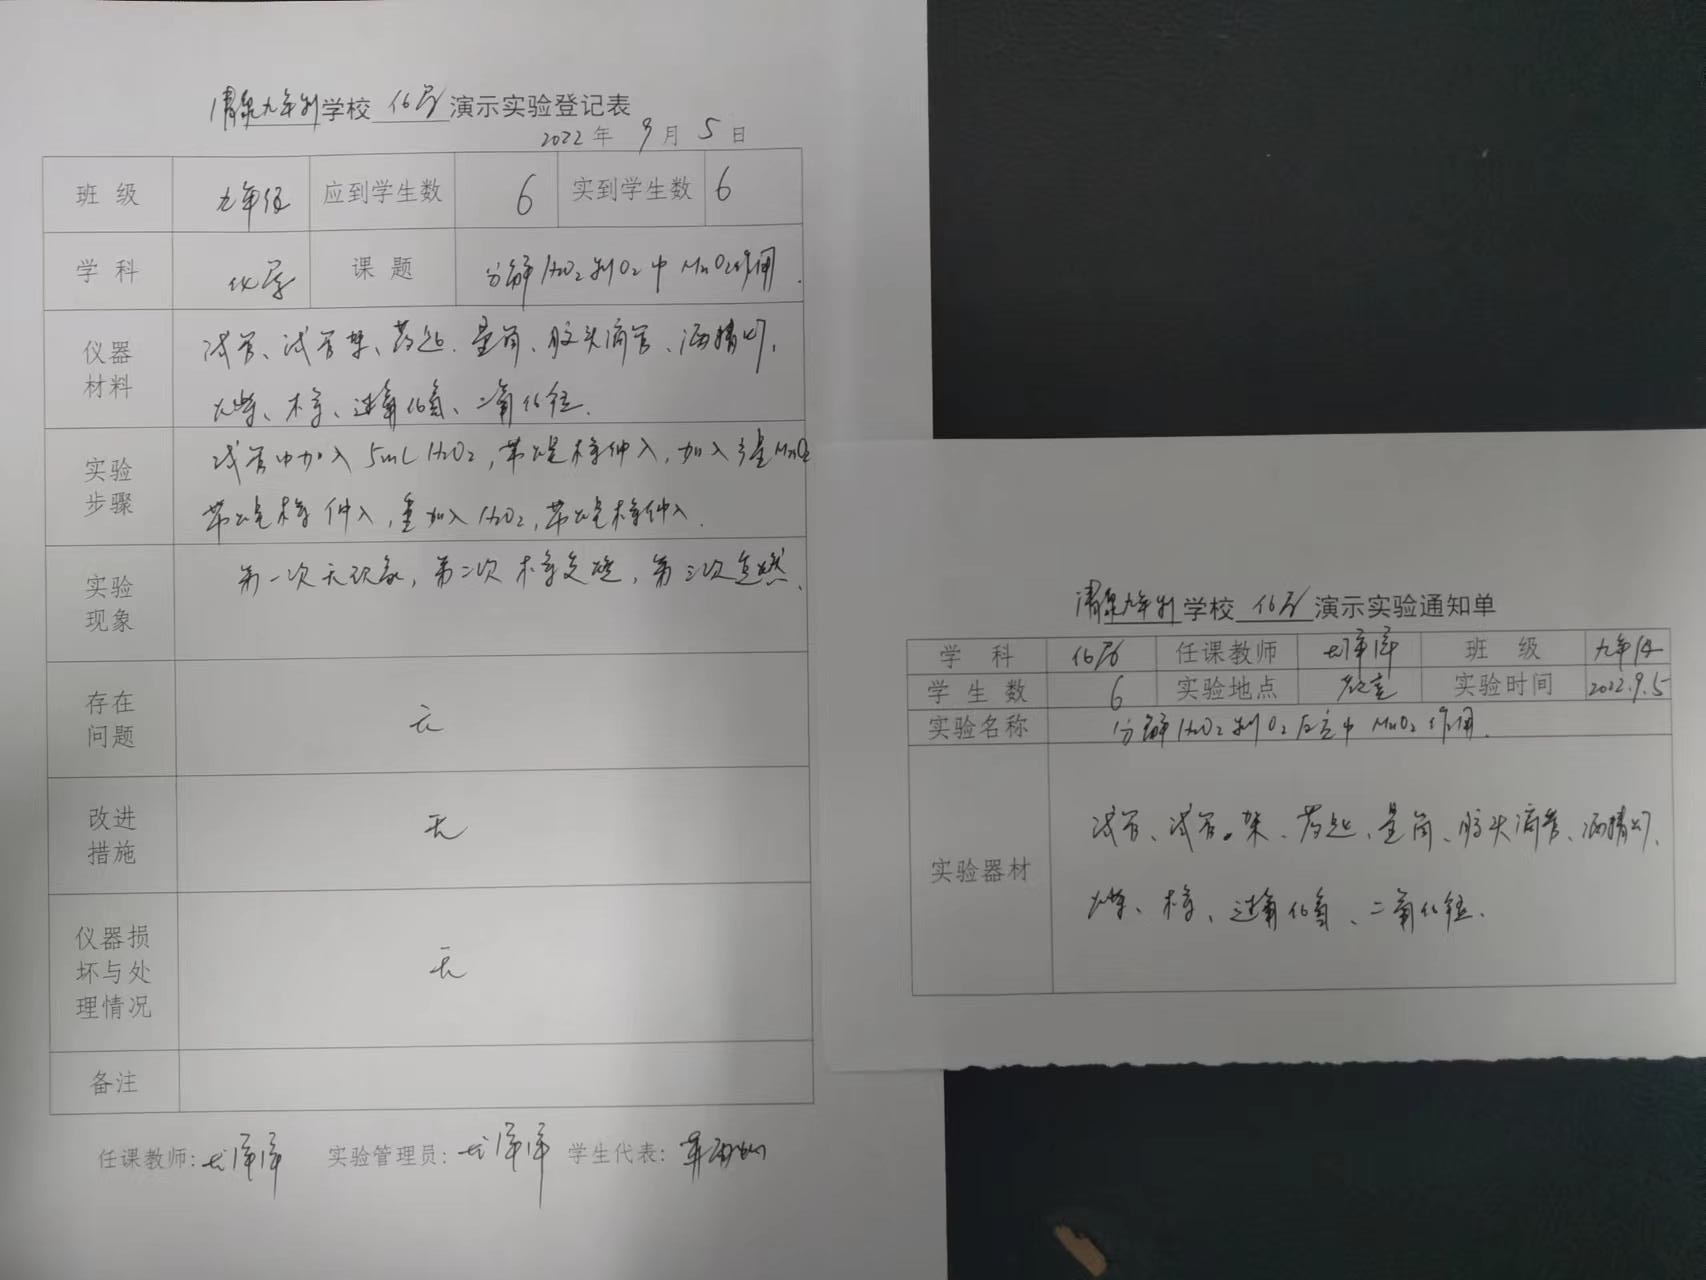 清泉九年制学校 化学 演示实验登记表
2022年 9月 5日
班 级 九年级 应到学生数 6 实到学生数 6
学 科 化学 课 题 分解H₂O₂制O₂中MnO₂作用.
仪器材料 试管、试管架、药匙、量筒、胶头滴管、酒精灯、
火柴、木条、过氧化氢、二氧化锰.
实验步骤 试管中加入5mL H₂O₂,带火星木条伸入,加入少量MnO₂
带火星木条伸入,重加入H₂O₂,带火星木条伸入.
实验现象 第一次无现象,第二次木条复燃,第三次复燃.
存在问题 无
改进措施 无
仪器损坏与处理情况 无
备注
任课教师: 实验管理员: 学生代表:
清泉九年制学校 化学 演示实验通知单
学 科 化学 任课教师 班 级 九年级
学 生 数 6 实验地点 教室 实验时间 2022.9.5
实验名称 分解H₂O₂制O₂反应中MnO₂作用.
实验器材 试管、试管架、药匙、量筒、胶头滴管、酒精灯、
火柴、木条、过氧化氢、二氧化锰.